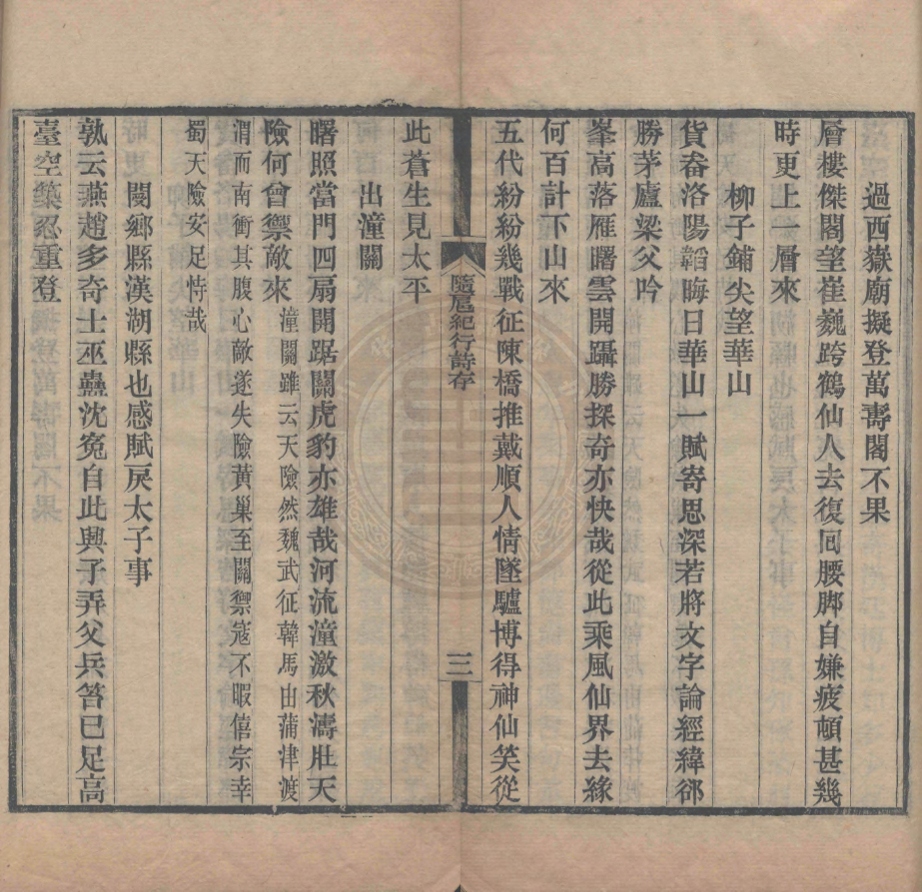 過西嶽廟擬登萬壽閣不果
層樓傑閣望崔巍跨鶴仙人去復回腰脚自嫌疲頓甚幾
時更上一層來
柳子鋪尖望華山
貨畚洛陽韜晦日華山一賦寄思深若將文字論經緯卻
勝茅廬梁父吟
峯高落雁曙雲開躡勝探奇亦快哉從此乘風仙界去緣
何百計下山來
五代紛紛幾戰征陳橋推戴順人情墜驢博得神仙笑從
隨扈紀行詩存
三
此蒼生見太平
出潼關
曙照當門四扇開踞關虎豹亦雄哉河流潼激秋濤壯天
險何曾禦敵來潼關雖云天險然魏武征韓馬由蒲津渡
渭而南衝其腹心敵遂失險黃巢至關禦寇不暇僖宗幸
蜀天險安足恃哉
閿鄉縣漢湖縣也感賦戾太子事
孰云燕趙多奇士巫蠱沈冤自此興子弄父兵笞已足高
臺空築忍重登